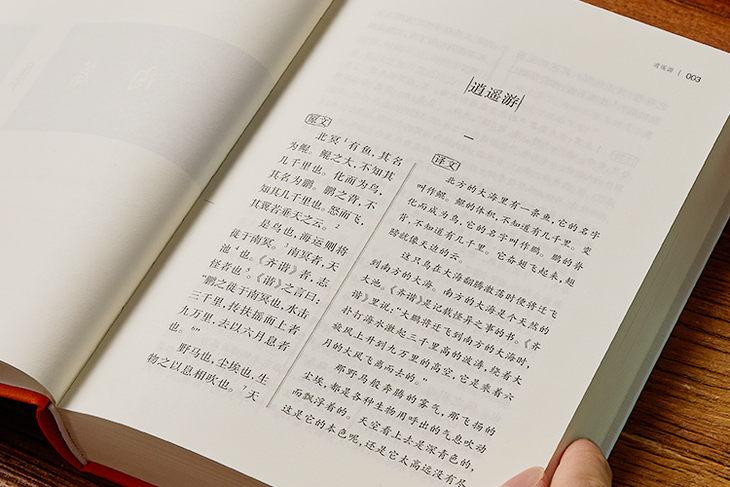 逍遥游 | 003
逍遥游
一
原文
北冥¹有鱼，其名
为鲲。鲲之大，不知其
几千里也。化而为鸟，
其名为鹏。鹏之背，不
知其几千里也。怒而飞，
其翼若垂天之云。²
是鸟也，海运则将
徙于南冥。³南冥者，天
池⁴也。《齐谐》者，志
怪者也⁵。《谐》之言曰：
“鹏之徙于南冥也，水击
三千里，抟扶摇而上者
九万里，去以六月息者
也。⁶”
野马也，尘埃也，生
物之以息相吹也。⁷天
译文
北方的大海里有一条鱼，它的名字
叫作鲲。鲲的体积，不知道有几千里。变
化而成为鸟，它的名字叫作鹏。鹏的脊
背，不知道有几千里。它奋翅飞起来，翅
膀就像天边的云。
这只鸟在大海翻腾激荡时便将迁飞
到南方的大海。南方的大海是个天然的
大池。《齐谐》是记载怪异之事的书。《齐
谐》里说：“大鹏将迁飞到南方的大海时，
扑打海水激起三千里高的波涛，绕着大
旋风上升到九万里的高空，它是乘着六
月的大风飞离而去的。”
那野马般奔腾的雾气，那飞扬的
尘埃，都是各种生物用呼出的气息吹动
而飘浮着的。天空看上去是深青色的，
这是它的本色呢，还是它太高远没有尽